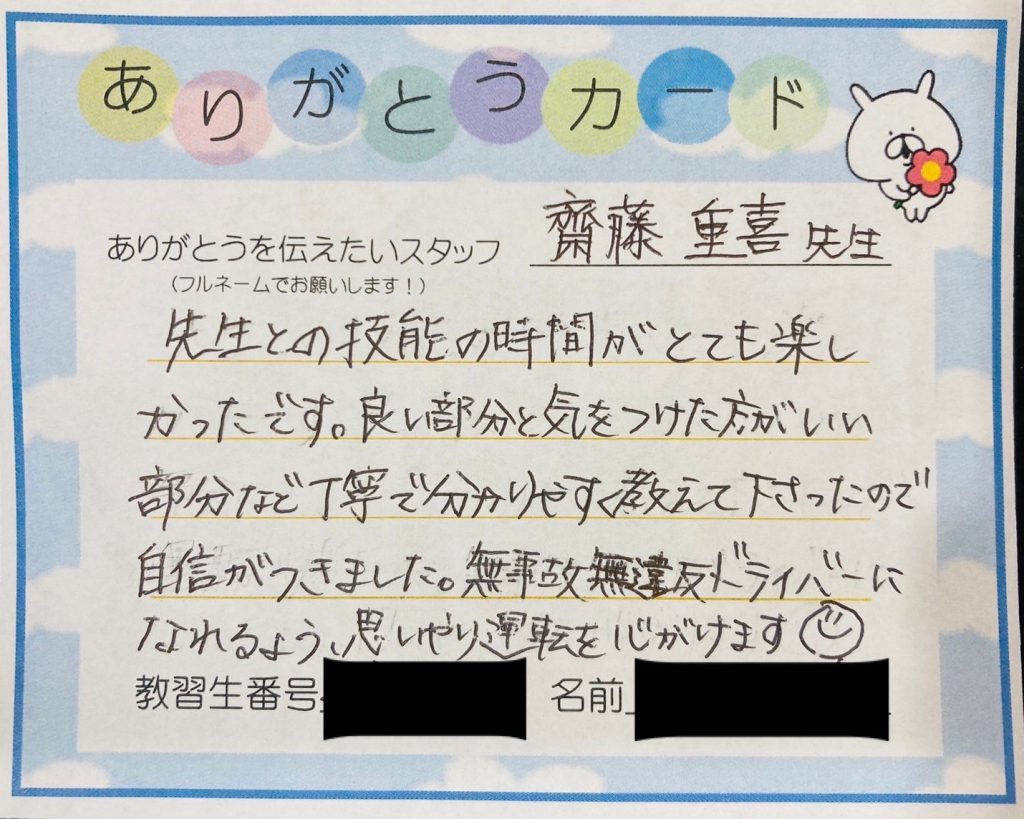 ありがとうカード
ありがとうを伝えたいスタッフ 齋藤 重喜 先生
(フルネームでお願いします！)
先生との技能の時間がとても楽し
かったです。良い部分と気をつけた方がいい
部分など丁寧で分かりやすく教えて下さったので
自信がつきました。無事故無違反ドライバーに
なれるよう、思いやり運転を心がけます
教習生番号 名前